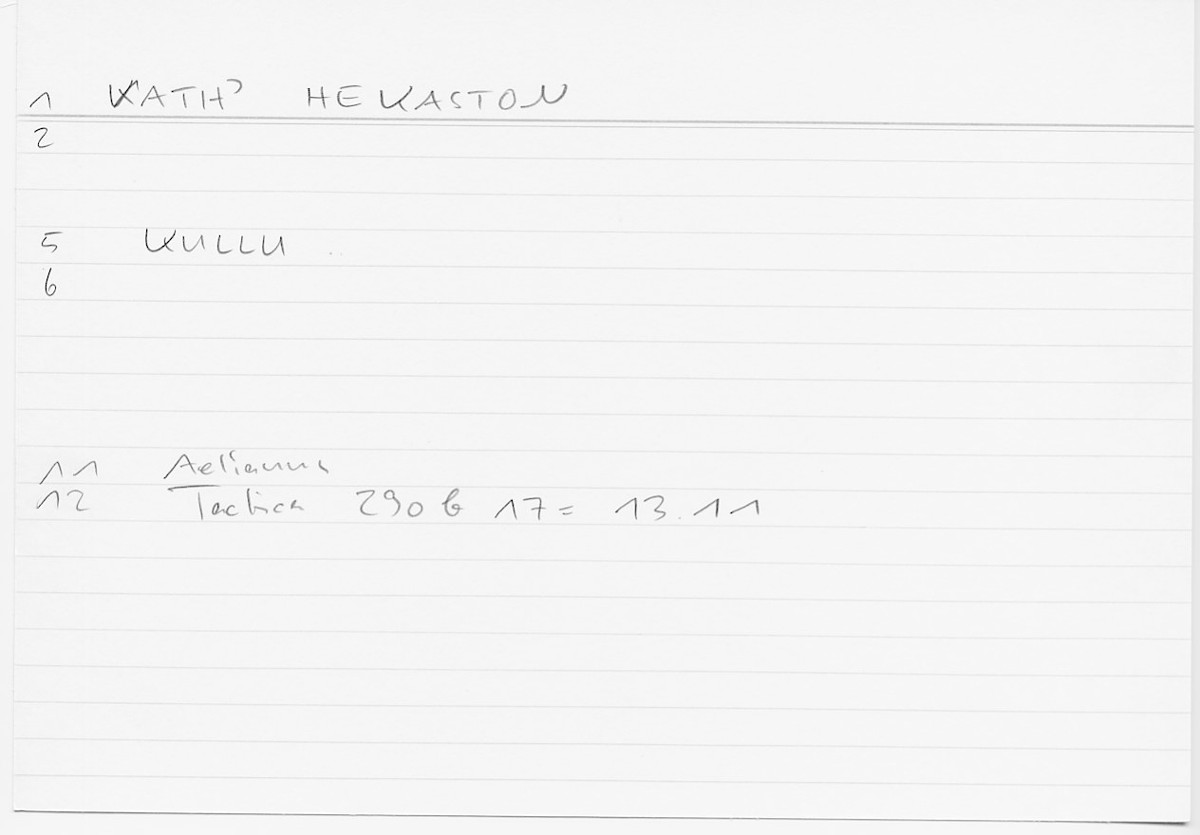 1 KATH' HEKASTON
2
5 KULLU
6
11 Aelianus
12 Tactica 290 b 17 = 13.11